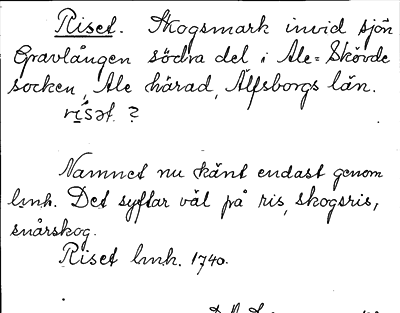 Riset. Skogsmark invid sjön
Gravlången södra del i Ale-Skövde
socken, Ale härad, Älfsborgs län.
rìsət. ?
Namnet nu känt endast genom
lmh. Det syftar väl på ris, skogsris,
snårskog.
Riset lmh. 1740.